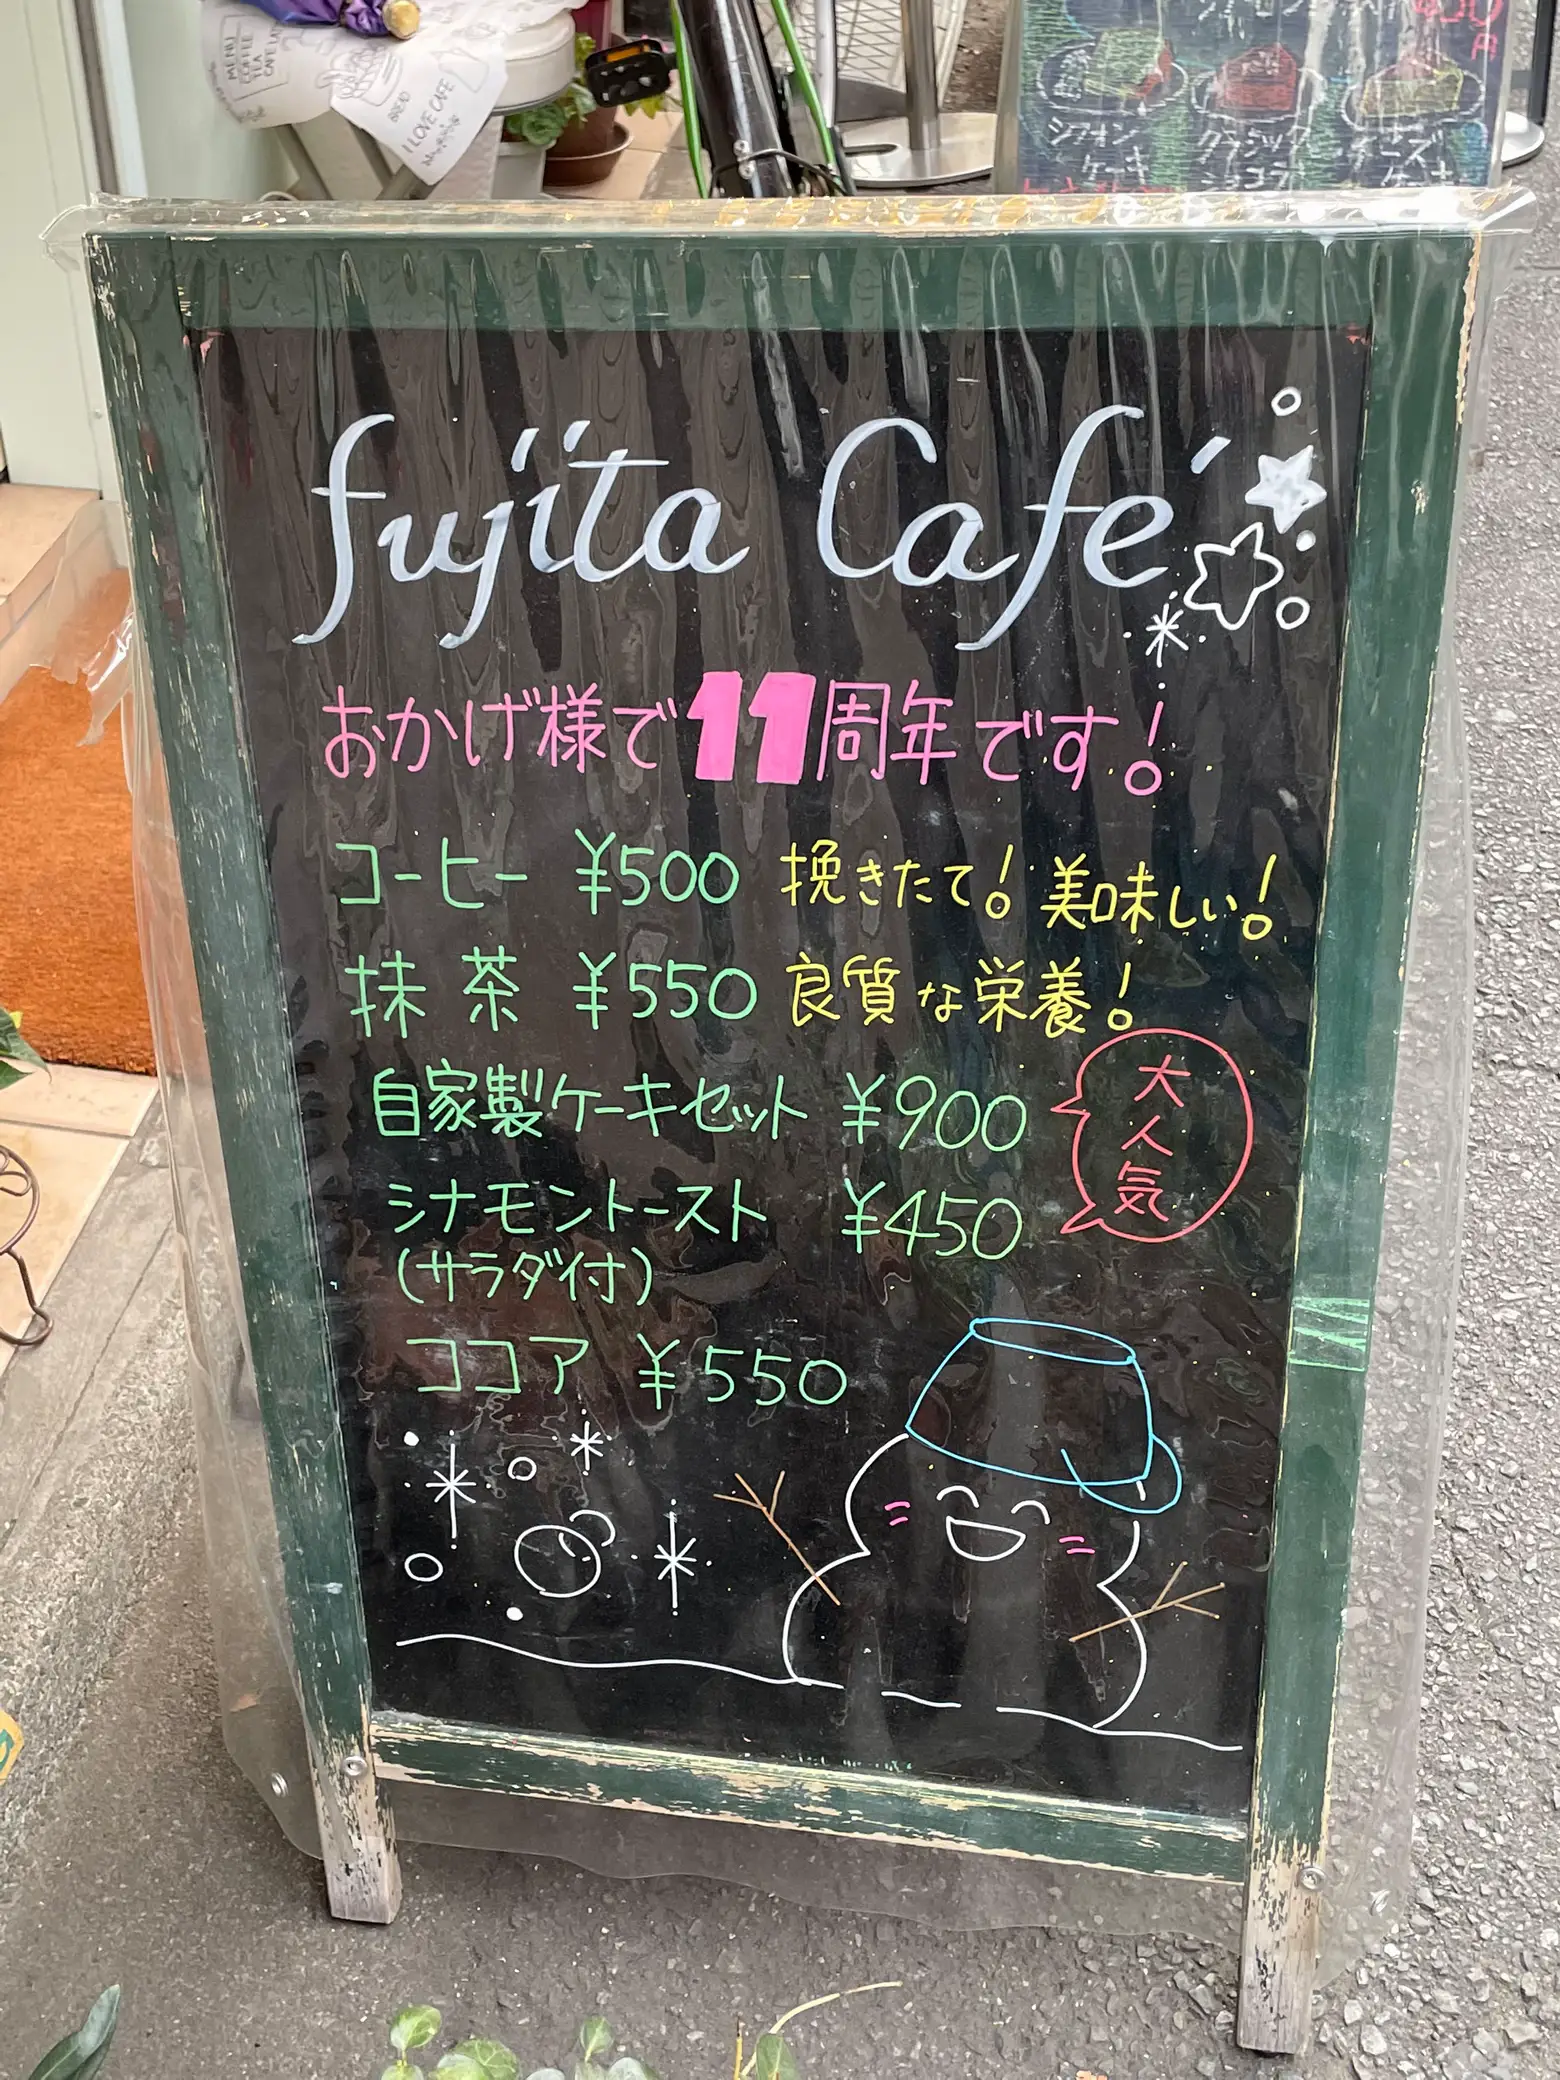 MENU
COFFEE
TEA
CAFE LAT
BREAD
I LOVE CAFE
シフォン
ケーキ
クラシック
ショコラ
チーズ
ケーキ
fujita Café
おかげ様で11周年です!
コーヒー ¥500 挽きたて! 美味しい!
抹茶 ¥550 良質な栄養!
自家製ケーキセット ¥900 大人気
シナモントースト ¥450
(サラダ付)
ココア ¥550